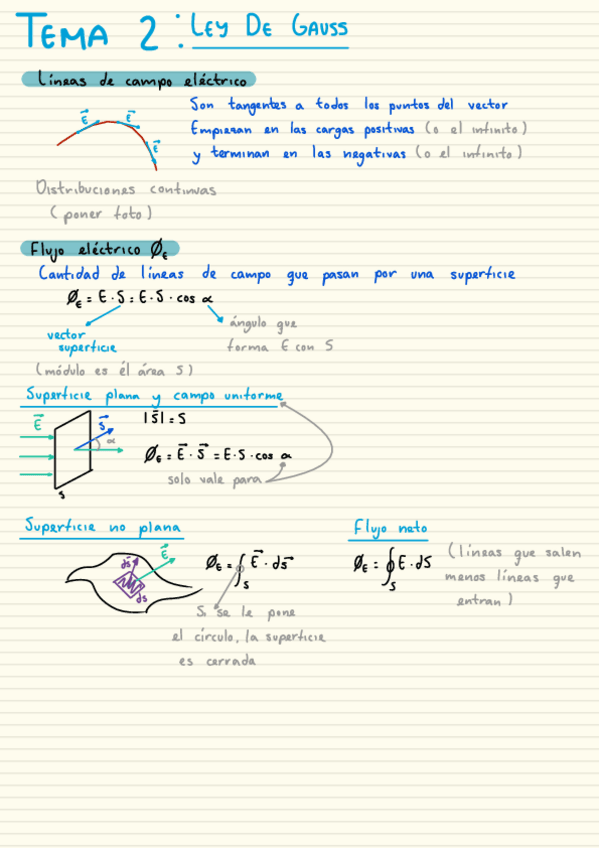 TEMA 2: LEY DE GAUSS
Líneas de campo eléctrico
E⃗ E⃗ E⃗
Son tangentes a todos los puntos del vector
Empiezan en las cargas positivas (o el infinito)
y terminan en las negativas (o el infinito)
Distribuciones continuas
(poner foto)
Flujo eléctrico Ø_E
Cantidad de líneas de campo que pasan por una superficie
Ø_E = E · S = E · S · cos α
vector
superficie
(módulo es él área S)
ángulo que
forma E con S
Superficie plana y campo uniforme
E⃗ S⃗ α S
|S⃗| = S
Ø_E = E⃗ · S⃗ = E · S · cos α
solo vale para
Superficie no plana
ds⃗ E⃗ ds
Ø_E = ∫_S E⃗ · ds⃗
Si se le pone
el círculo, la superficie
es cerrada
Flujo neto
Ø_E = ∮_S E · dS
(líneas que salen
menos líneas que
entran)